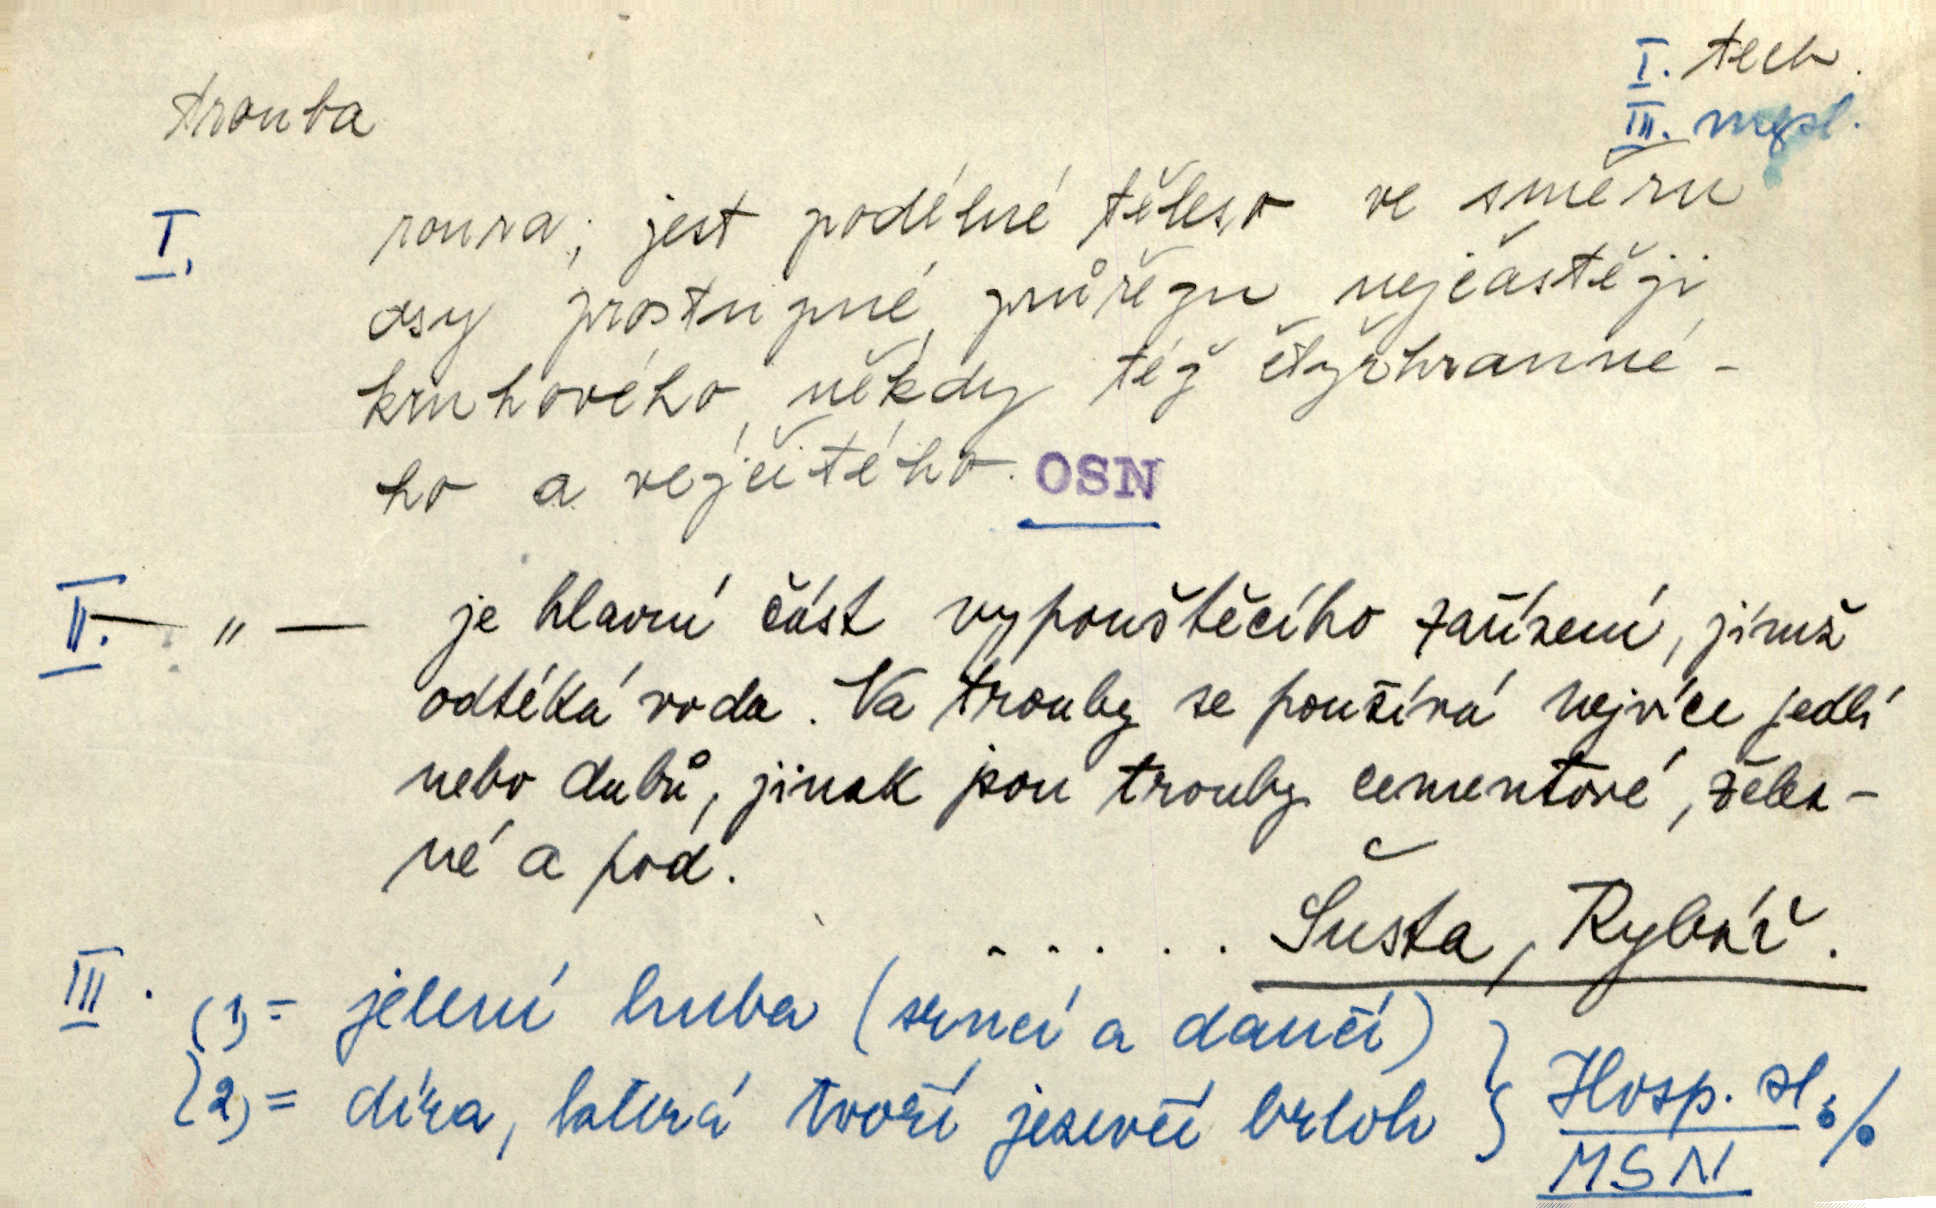 I. tech.
trouba
III. mysl.
I. roura; jest podélné těleso ve směru
osy prostupné, průřezu nejčastěji
kruhového, někdy též čtyřhranné-
ho a vejčitého. OSN
II. — " — je hlavní část vypouštěcího zařízení, jímž
odtéká voda. Na trouby se používá nejvíce jedlí
nebo dubů, jinak jsou trouby cementové, želez-
né a pod.
. . . . . . Šusta, Rybář.
III. (1) = jelení huba (srnčí a dančí)
2) = díra, která tvoří jezevčí brloh } Hosp. sl. %
MSN